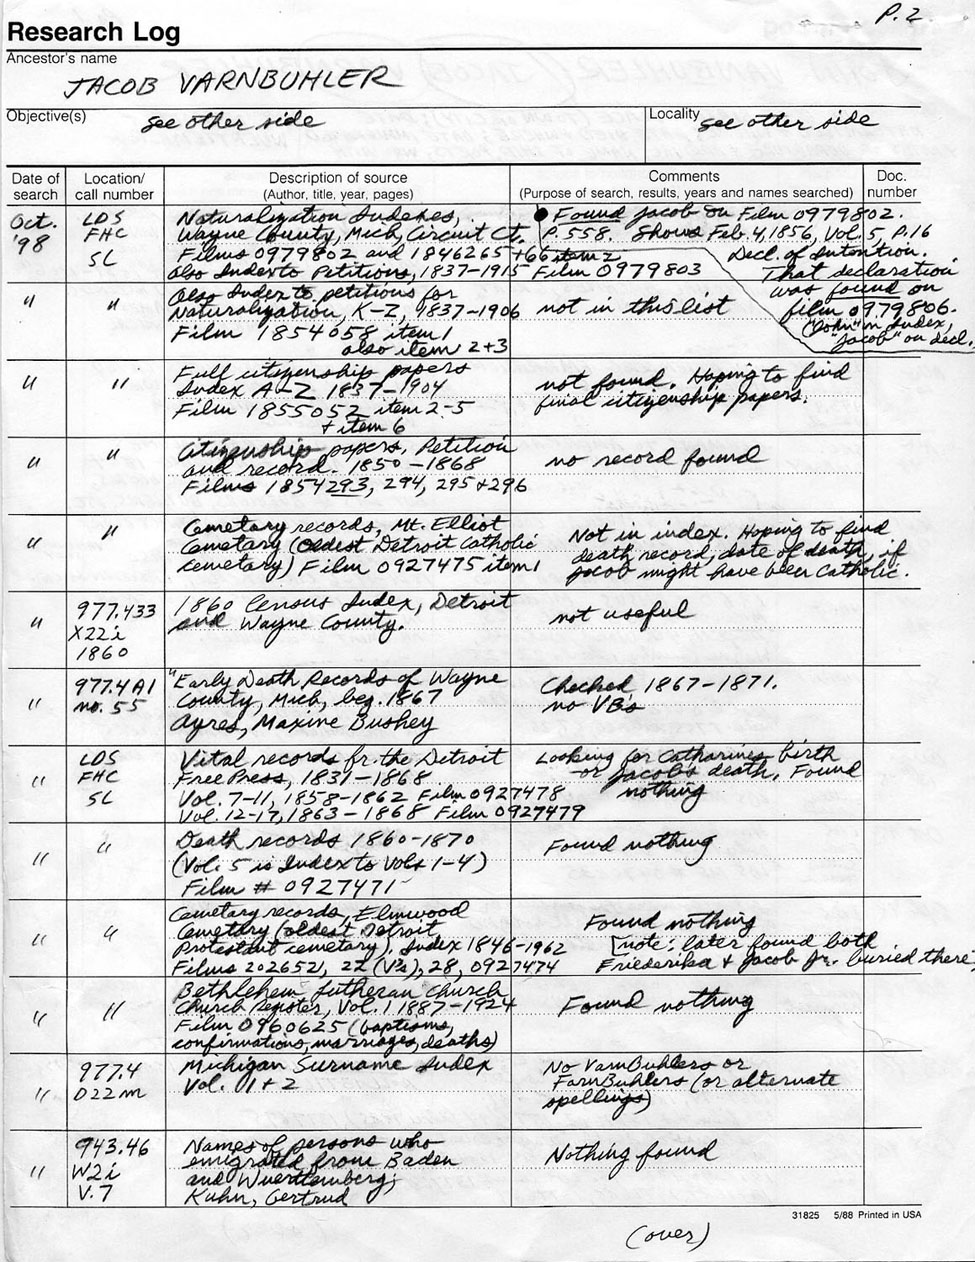 P.2
Research Log
Ancestor's name
JACOB VARNBUHLER
Objective(s)
see other side
Locality
see other side
Date of search
Location/ call number
Description of source
(Author, title, year, pages)
Comments
(Purpose of search, results, years and names searched)
Doc. number
Oct. '98
LDS
FHC
SL
Naturalization Indexes,
Wayne County, Mich, Circuit Ct.
Films 0979802 and 1846265 +66 item 2
also Index to Petitions, 1837-1915 Film 0979803
Found Jacob on Film 0979802.
P.558. Shows Feb. 4, 1856, Vol. 5, P.16
Decl. of Intention.
That declaration
was found on
film 0979806.
"John" in Index,
"Jacob" on decl.
" "
Also Index to petitions for
Naturalization, K-Z, 1837-1906
Film 1854058 item 1
also item 2+3
not in this list
" "
Full citizenship papers
Index A-Z 1837-1904
Film 1855052 item 2-5
+ item 6
not found. Hoping to find
final citizenship papers.
" "
Citizenship papers, Petition
and record. 1850-1868
Films 1854293, 294, 295+296
no record found
" "
Cemetary records, Mt. Elliot
Cemetary (oldest Detroit Catholic
cemetary) Film 0927475 item 1
Not in index. Hoping to find
death record, date of death, if
Jacob might have been Catholic.
"
977.433
X22i
1860
1860 Census Index, Detroit
and Wayne County.
not useful
"
977.4 A1
no. 55
"Early Death Records of Wayne
County, Mich, beg. 1867
Ayres, Maxine Bushey
Checked 1867-1871.
no VB's
"
LDS
FHC
SL
Vital records fr. the Detroit
Free Press, 1831-1868
Vol. 7-11, 1858-1862 Film 0927478
Vol. 12-17, 1863-1868 Film 0927479
Looking for Catharines birth
or Jacob's death. Found
nothing
" "
Death records 1860-1870
(Vol. 5 is Index to Vols 1-4)
Film # 0927471
Found nothing
" "
Cemetary records, Elmwood
Cemetary (oldest Detroit
Protestant cemetary), Index 1846-1962
Films 202652, 22 (V's), 28, 0927474
Found nothing
[note: later found both
Friederika + Jacob Jr. buried there]
" "
Bethlehem Lutheran Church
Church Register, Vol. 1 1887-1924
Film 0960625 (baptisms,
confirmations, marriages, deaths)
Found nothing
"
977.4
D22m
Michigan Surname Index
Vol. 1+2
No VarnBuhlers or
FarnBuhlers (or alternate
spellings)
"
943.46
W2i
V.7
Names of persons who
emigrated from Baden
and Wuerttemberg;
Kuhn, Gertrud
Nothing found
31825 5/88 Printed in USA
(over)